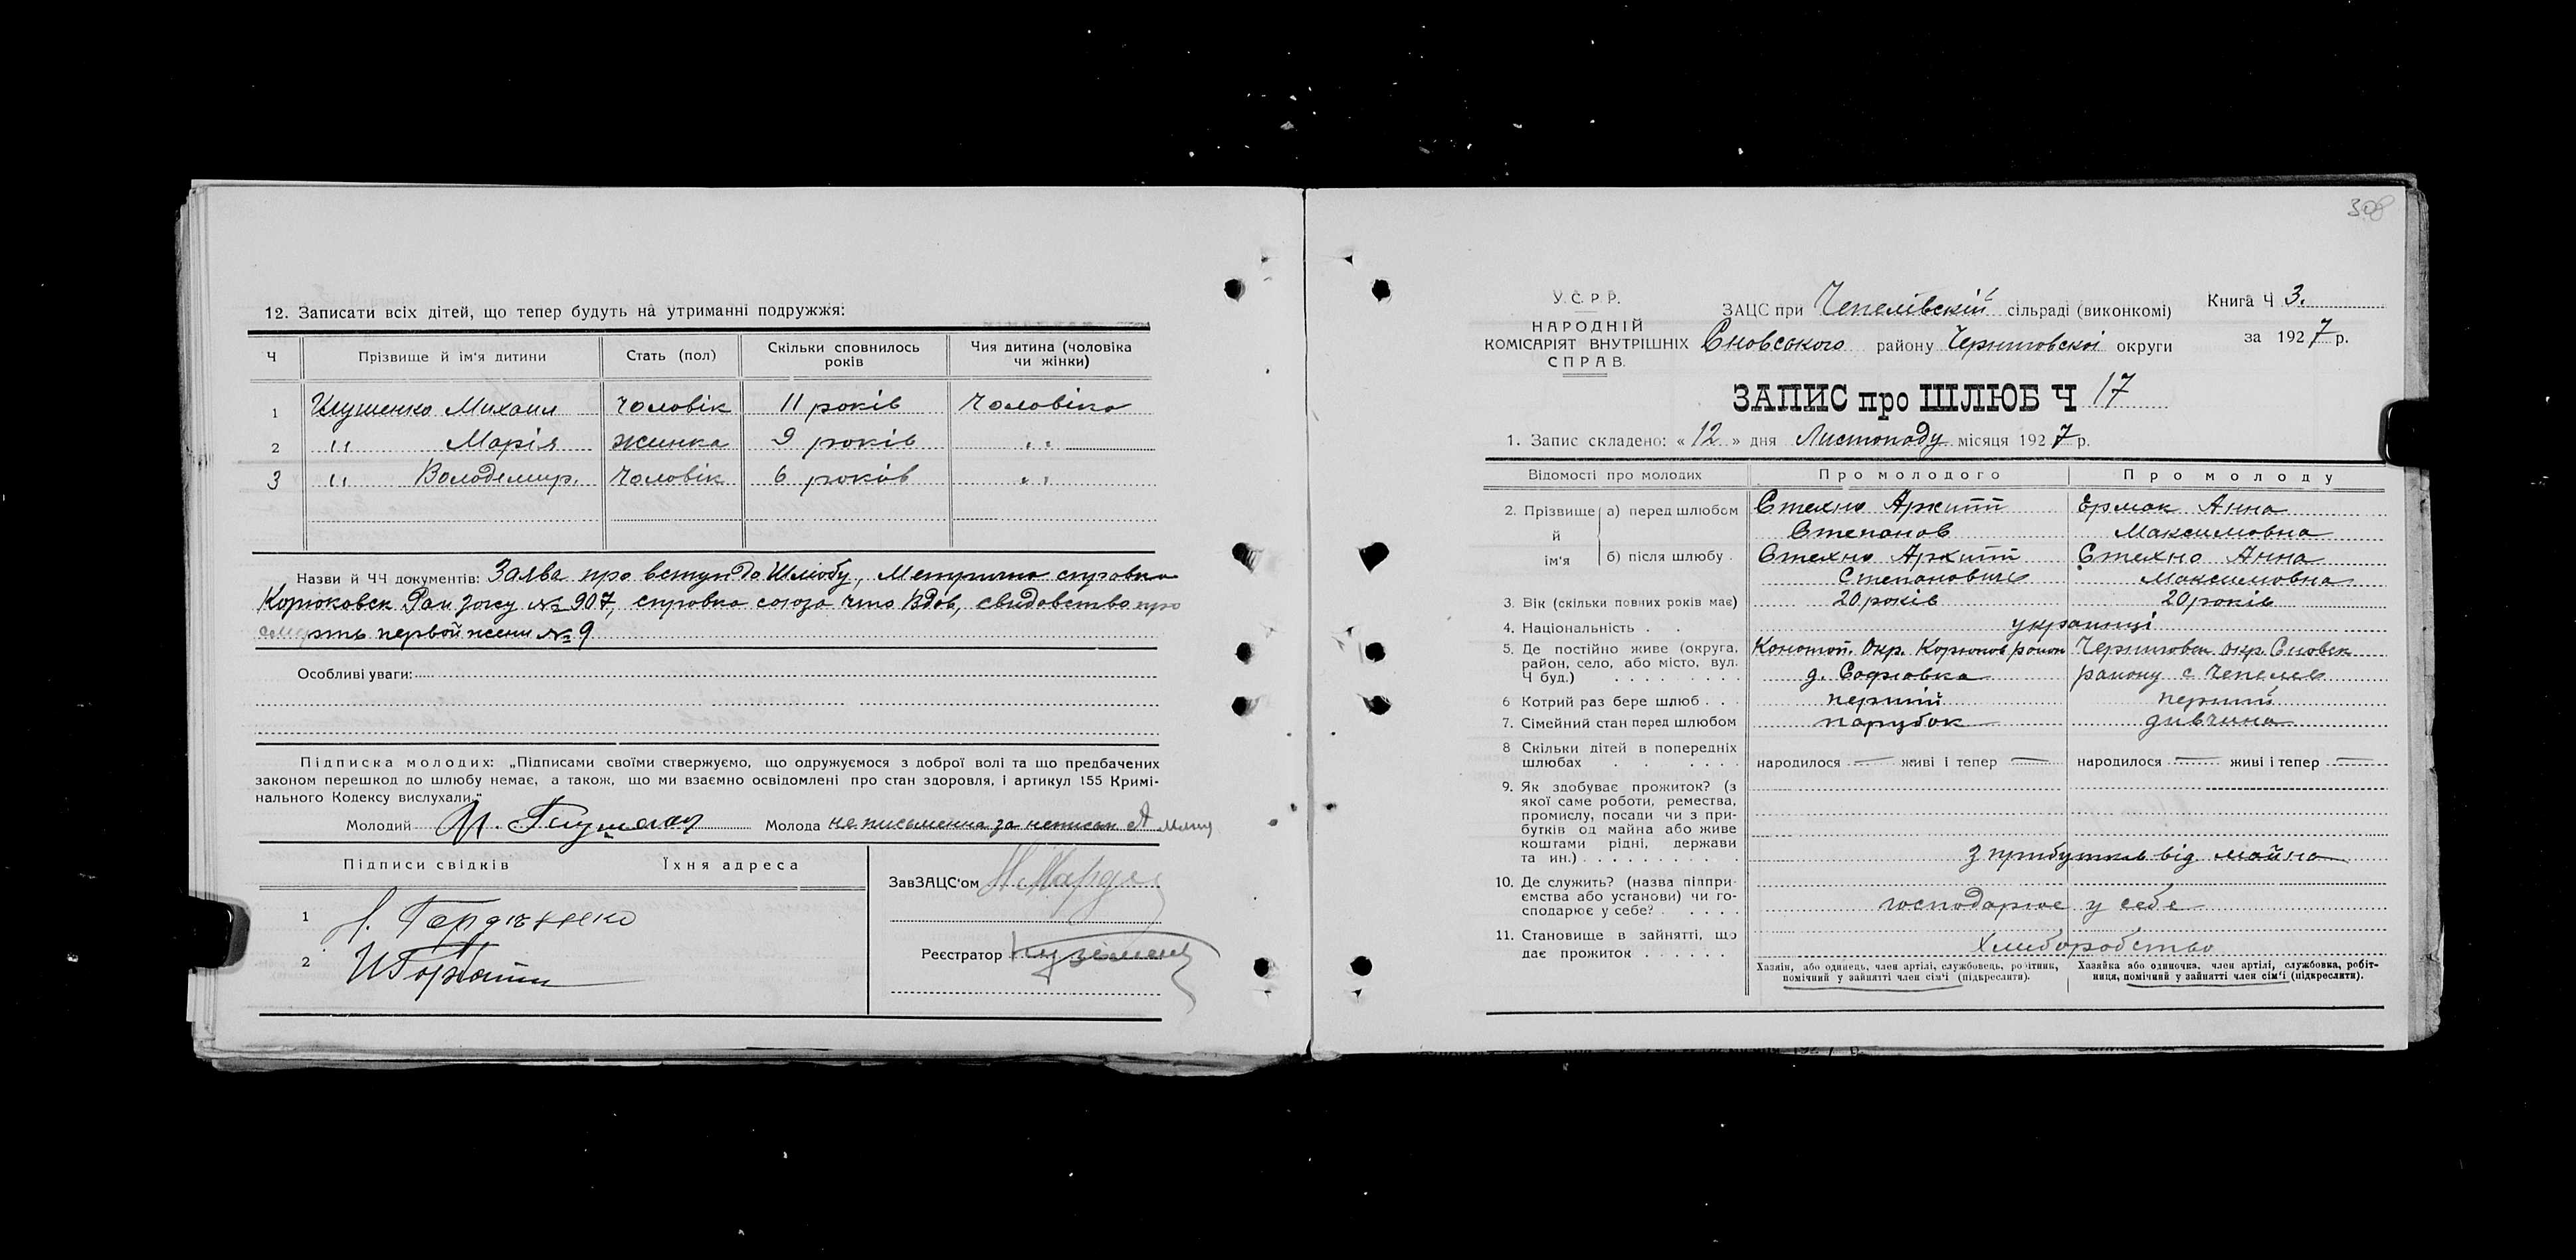 12. Записати всіх дітей, що тепер будуть на утриманні подружжя:
Ч Прізвище й ім'я дитини Стать (пол) Скільки сповнилось років Чия дитина (чоловіка чи жінки)
1 Глушенко Михаил чоловік 11 років чоловіка
2 " Марія жинка 9 років "
3 " Володемир. чоловік 6 років "
Назви й ЧЧ документів: Заява про вступ до Шлюбу, Метрична справка
Корюковск Рай загсу № 907, справка союза что вдов, свидовство про
смерть первой жени № 9
Особливі уваги:
Підписка молодих: „Підписами своїми стверджуємо, що одружуємося з доброї волі та що предбачених
законом перешкод до шлюбу немає, а також, що ми взаємно освідомлені про стан здоровля, і артикул 155 Кримі-
нального Кодексу вислухали."
Молодий Молода не письменна за неписан
Підписи свідків Їхня адреса
ЗавЗАЦС'ом
1
Реєстратор
2
308
У. С. Р. Р.
НАРОДНІЙ
КОМІСАРІЯТ ВНУТРІШНІХ
СПРАВ.
ЗАЦС при Чепелівській сільраді (виконкомі)
Сновського району Черниговскоі округи
Книга Ч 3.
за 1927 р.
ЗАПИС про ШЛЮБ Ч 17
1. Запис складено: « 12 » дня Листопаду місяця 1927 р.
Відомості про молодих Про молодого Про молоду
2. Прізвище й ім'я а) перед шлюбом Стехно Архипп Ермак Анна
Степанов Максимовна
б) після шлюбу Стехно Архипп Стехно Анна
Степанович Максимовна
3. Вік (скільки повних років має) 20 років 20 років
4. Національність украинці
5. Де постійно живе (округа, Конотоп. Окр. Корюков район Черниговск окр. Сновск
район, село, або місто, вул. д. Софиовка району с Чепелев
Ч буд.)
6 Котрий раз бере шлюб перший перший
7. Сімейний стан перед шлюбом парубок дивчина
8 Скільки дітей в попередніх
шлюбах народилося — живі і тепер — народилося — живі і тепер —
9. Як здобуває прожиток? (з
якої саме роботи, ремества,
промислу, посади чи з при-
бутків од майна або живе
коштами рідні, держави
та ин.) з прибутків від майна
10. Де служить? (назва підпри-
ємства або установи) чи го-
сподарює у себе? господарює у себе
11. Становище в зайнятті, що Хлиборобство
дає прожиток
Хазяїн, або одинець, член артілі, службовець, робітник, помічний у зайнятті член сім'ї (підкреслити).
Хазяйка або одиночка, член артілі, службовка, робіт-ниця, помічний у зайнятті член сім'ї (підкреслити).